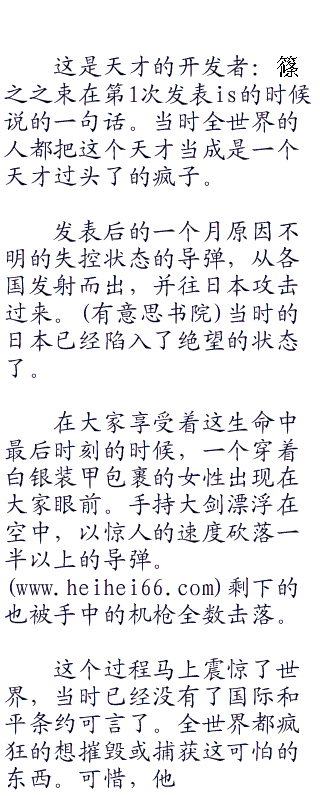 这是天才的开发者：篠
之之束在第1次发表is的时候
说的一句话。当时全世界的
人都把这个天才当成是一个
天才过头了的疯子。
发表后的一个月原因不
明的失控状态的导弹，从各
国发射而出，并往日本攻击
过来。(有意思书院)当时的
日本已经陷入了绝望的状态
了。
在大家享受着这生命中
最后时刻的时候，一个穿着
白银装甲包裹的女性出现在
大家眼前。手持大剑漂浮在
空中，以惊人的速度砍落一
半以上的导弹。
(www.heihei66.com)剩下的
也被手中的机枪全数击落。
这个过程马上震惊了世
界，当时已经没有了国际和
平条约可言了。全世界都疯
狂的想摧毁或捕获这可怕的
东西。可惜，他